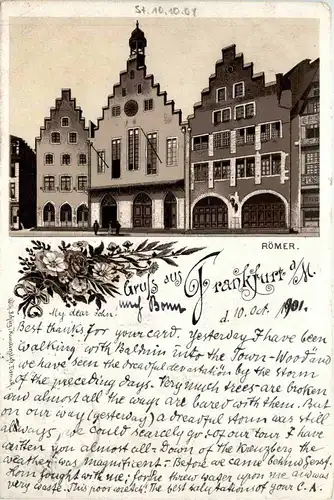 St. 10.10.01
RÖMER.
Gruß aus Frankfurt a/M.
und Bonn
d. 10. Oct. 1901.
My dear John!
Best thanks for your card. Yesterday I have been
walking with Balduin into the Town-Wood and
we have seen the dreadful devastation by the storm
of the preceding days. Very much trees are broken
and almost all the ways are bared with them. But
on our way (yesterday) a dreadful storm was still
always, we could scarcely go. Of our tour I have
written you almost all. Down of the Kreuzberg the
weather was magnificent. Before we came behind
fought with me; for he threw upon me
very waste. This poor The best salutation of your C. A.